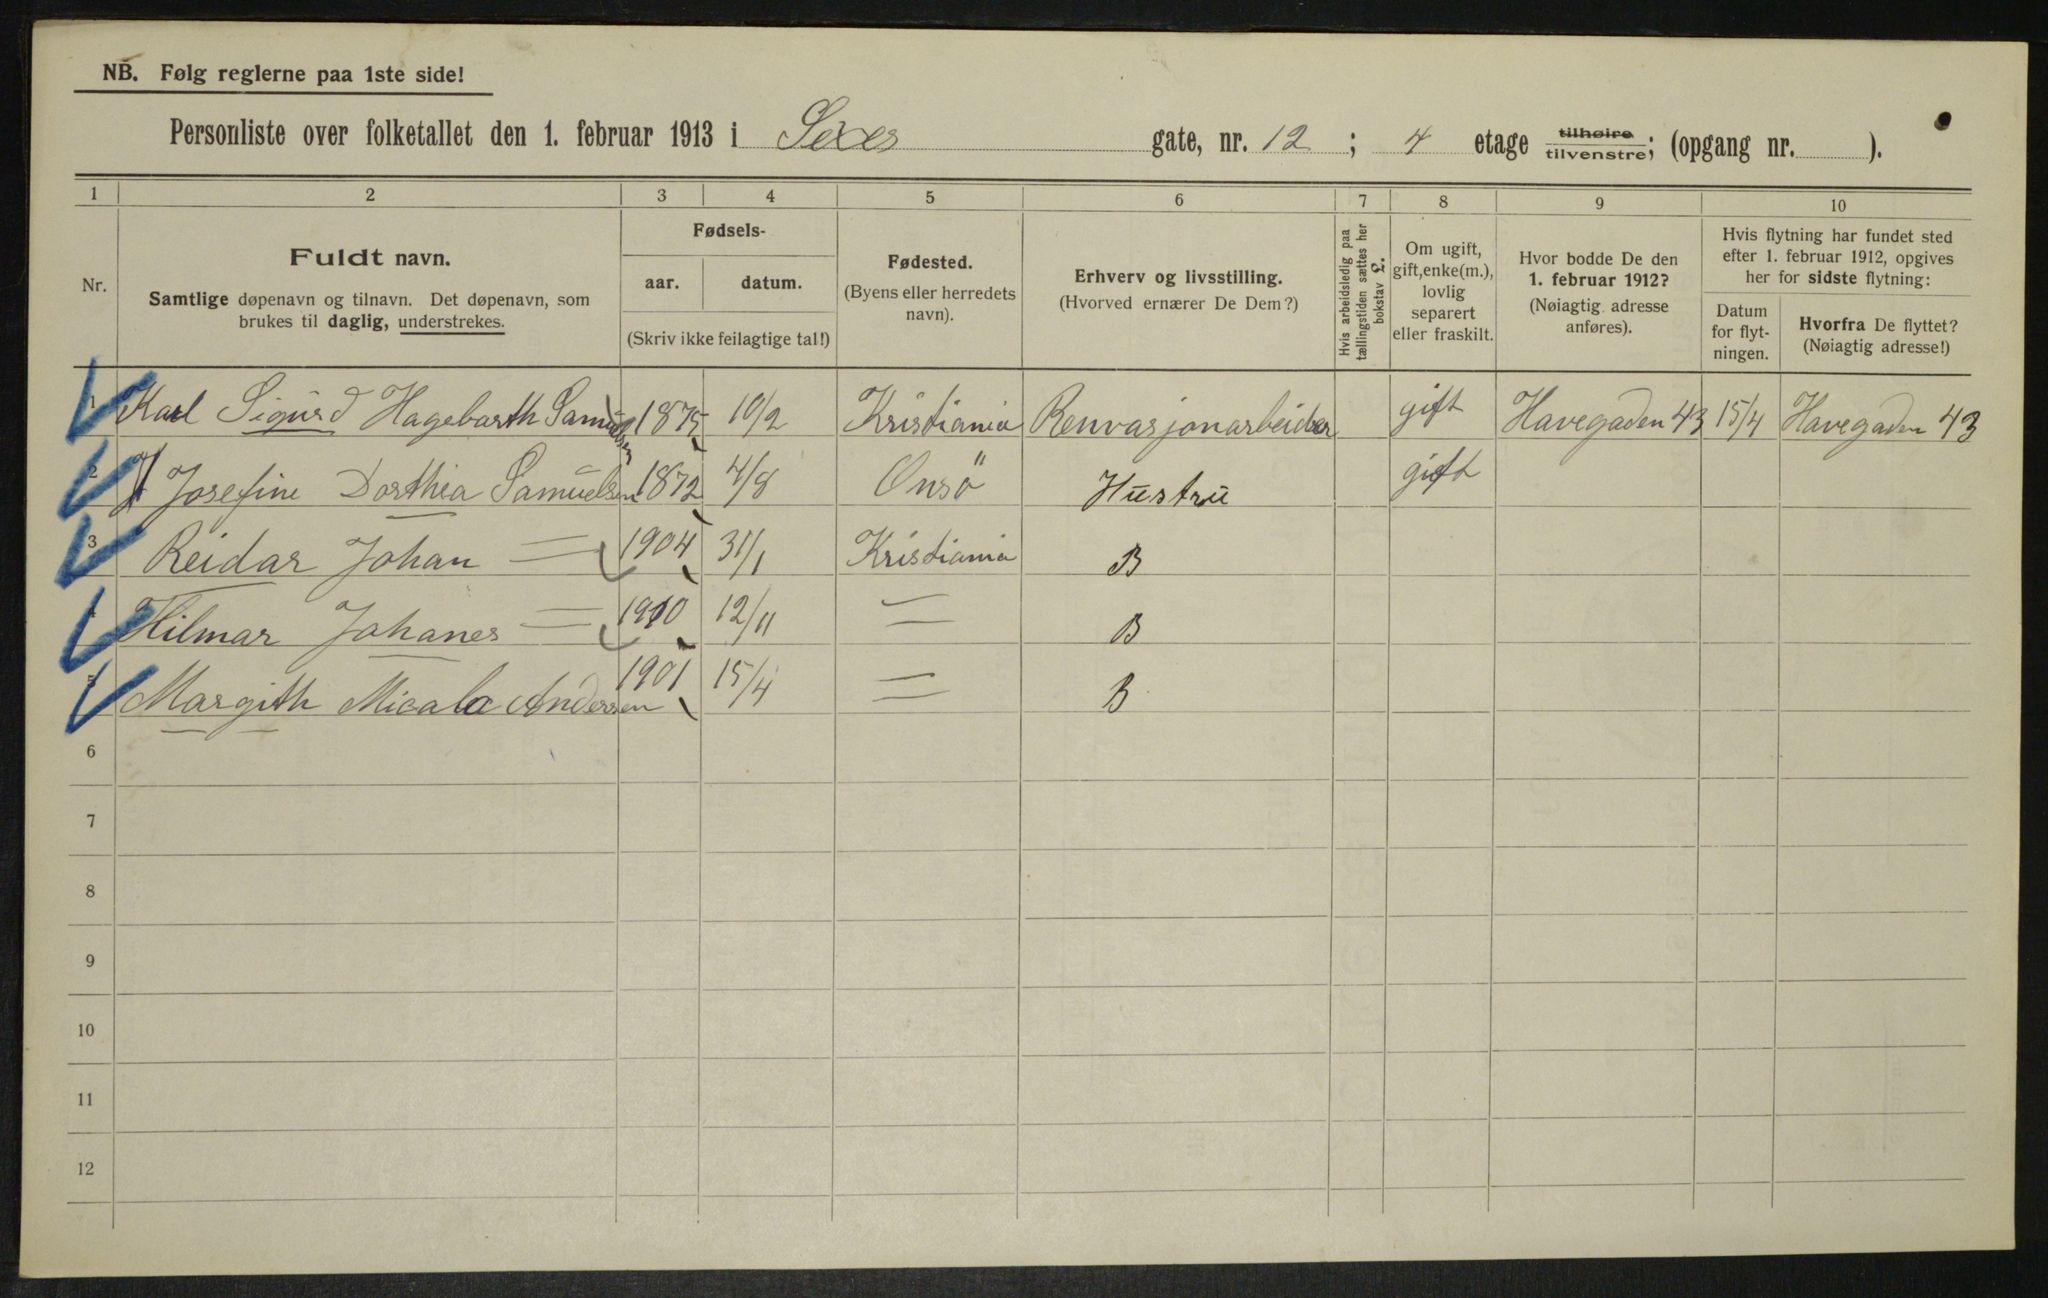 NB. Følg reglerne paa 1ste side!
Personliste over folketallet den 1. februar 1913 i Sexes gate, nr. 12 ; 4 etage tilhøire tilvenstre; (opgang nr. ).
1 2 3 4 5 6 7 8 9 10
Nr.
Fuldt navn.
Samtlige døpenavn og tilnavn. Det døpenavn, som
brukes til daglig, understrekes.
Fødsels-
aar. datum.
(Skriv ikke feilagtige tal!)
Fødested.
(Byens eller herredets
navn).
Erhverv og livsstilling.
(Hvorved ernærer De Dem?)
Hvis arbeidsledig paa
tællingstiden sættes her
bokstav L.
Om ugift,
gift, enke(m.),
lovlig
separert
eller fraskilt.
Hvor bodde De den
1. februar 1912?
(Nøiagtig adresse
anføres).
Hvis flytning har fundet sted
efter 1. februar 1912, opgives
her for sidste flytning:
Datum
for flyt-
ningen.
Hvorfra De flyttet?
(Nøiagtig adresse!)
1 Karl Sigurd Hagebarth Samuelsen 1875 10/2 Kristiania Renvasjonarbeider gift Havegaden 43 15/4 Havegaden 43
2 Josefine Dorthea Samuelsen 1872 4/8 Onsö Hustru gift
3 Reidar Johan — 1904 31/1 Kristiania B
4 Hilmar Johanes — 1910 12/11 — B
5 Margith Micala Andersen 1901 15/4 — B
6
7
8
9
10
11
12